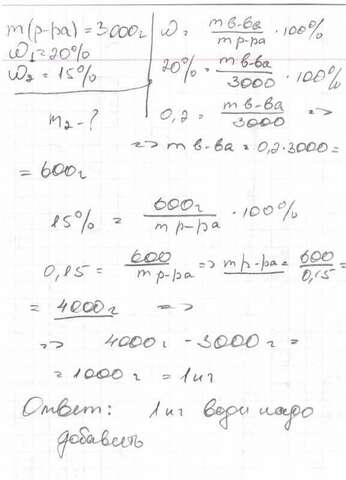 m(р-ра) = 3000г
ω₁ = 20%
ω₂ = 15%
m₂ - ?
ω = m в-ва / m р-ра · 100%
20% = m в-ва / 3000 · 100%
0,2 = m в-ва / 3000 =>
=> m в-ва = 0,2 · 3000 =
= 600г
15% = 600г / m р-ра · 100%
0,15 = 600 / m р-ра => m р-ра = 600 / 0,15 =
= 4000г =>
=> 4000г - 3000г =
= 1000г = 1кг
Ответ: 1кг води надо
добавить